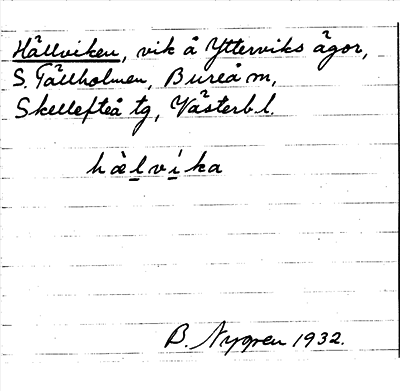 Hällviken, vik å Ytterviks ägor,
S. Tällholmen, Bureå m,
Skellefteå tg, Västerb.l.
hὰlvíka
B. Nygren 1932.